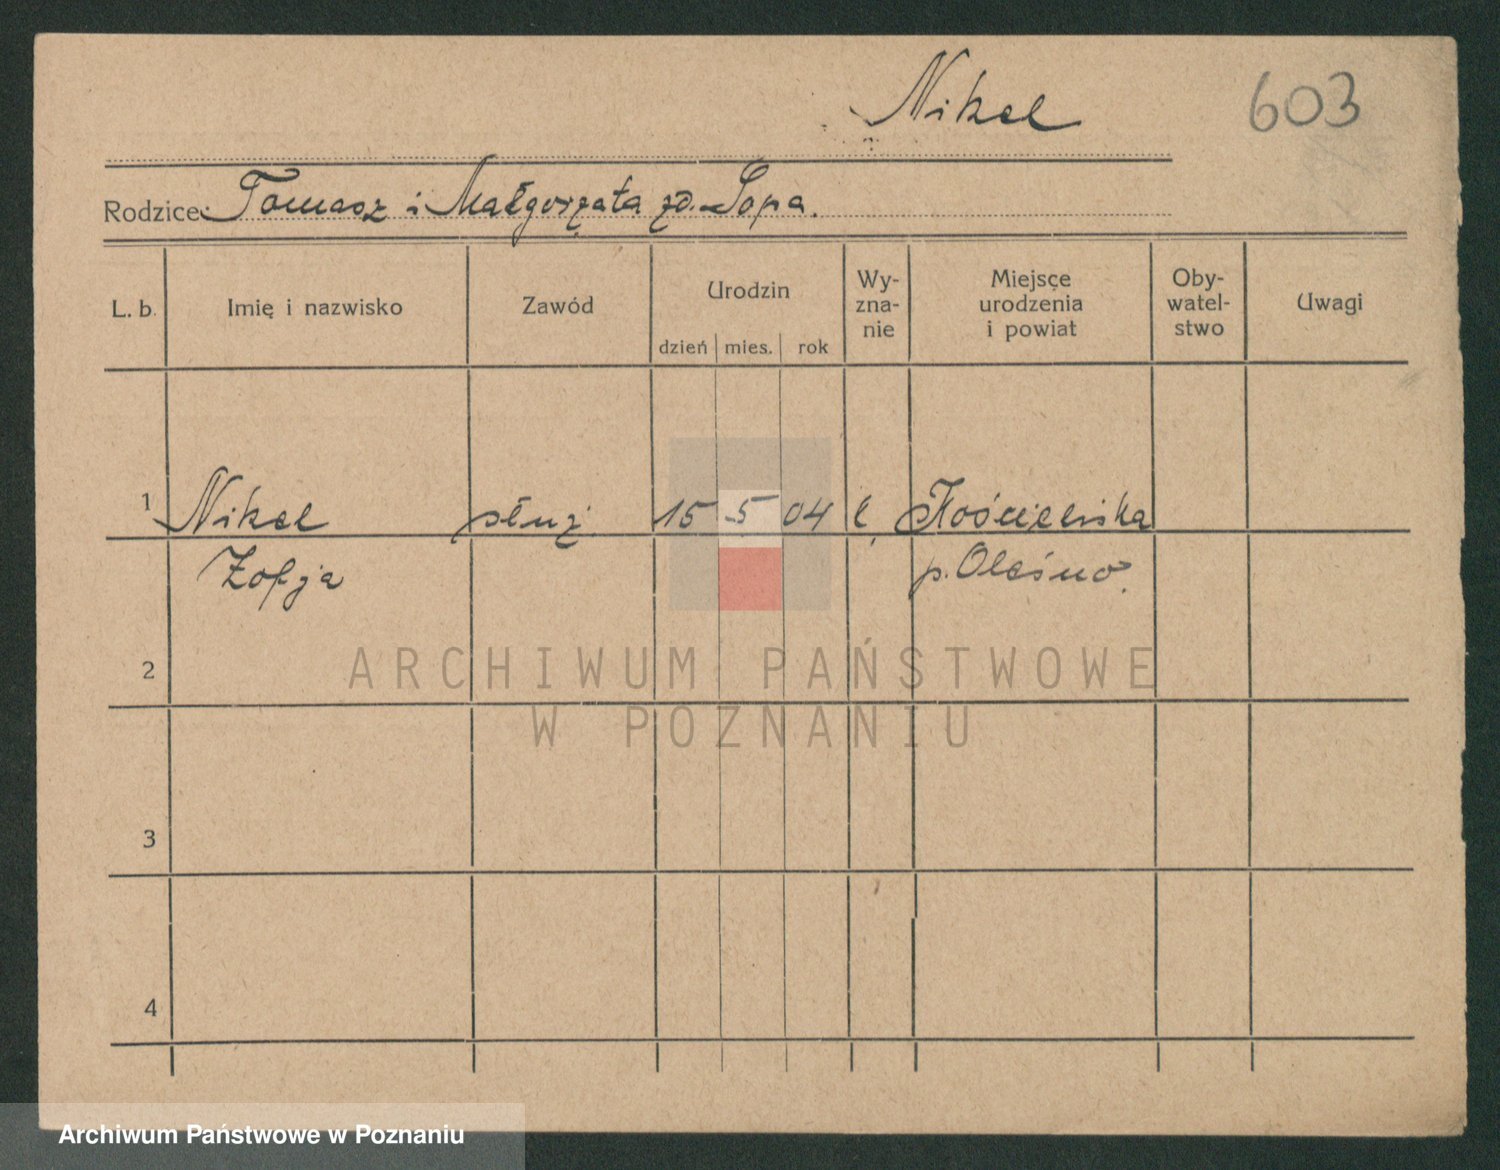 Nikel
603
Rodzice: Tomasz i Małgorzata zd. Sopa.
L. b. Imię i nazwisko Zawód Urodzin dzień mies. rok Wy-zna-nie Miejsce urodzenia i powiat Oby-watel-stwo Uwagi
1 Nikel służ. 15 5 04 Kościeliska
Zofja p. Oleśno.
2
ARCHIWUM PAŃSTWOWE
W POZNANIU
3
4
Archiwum Państwowe w Poznaniu